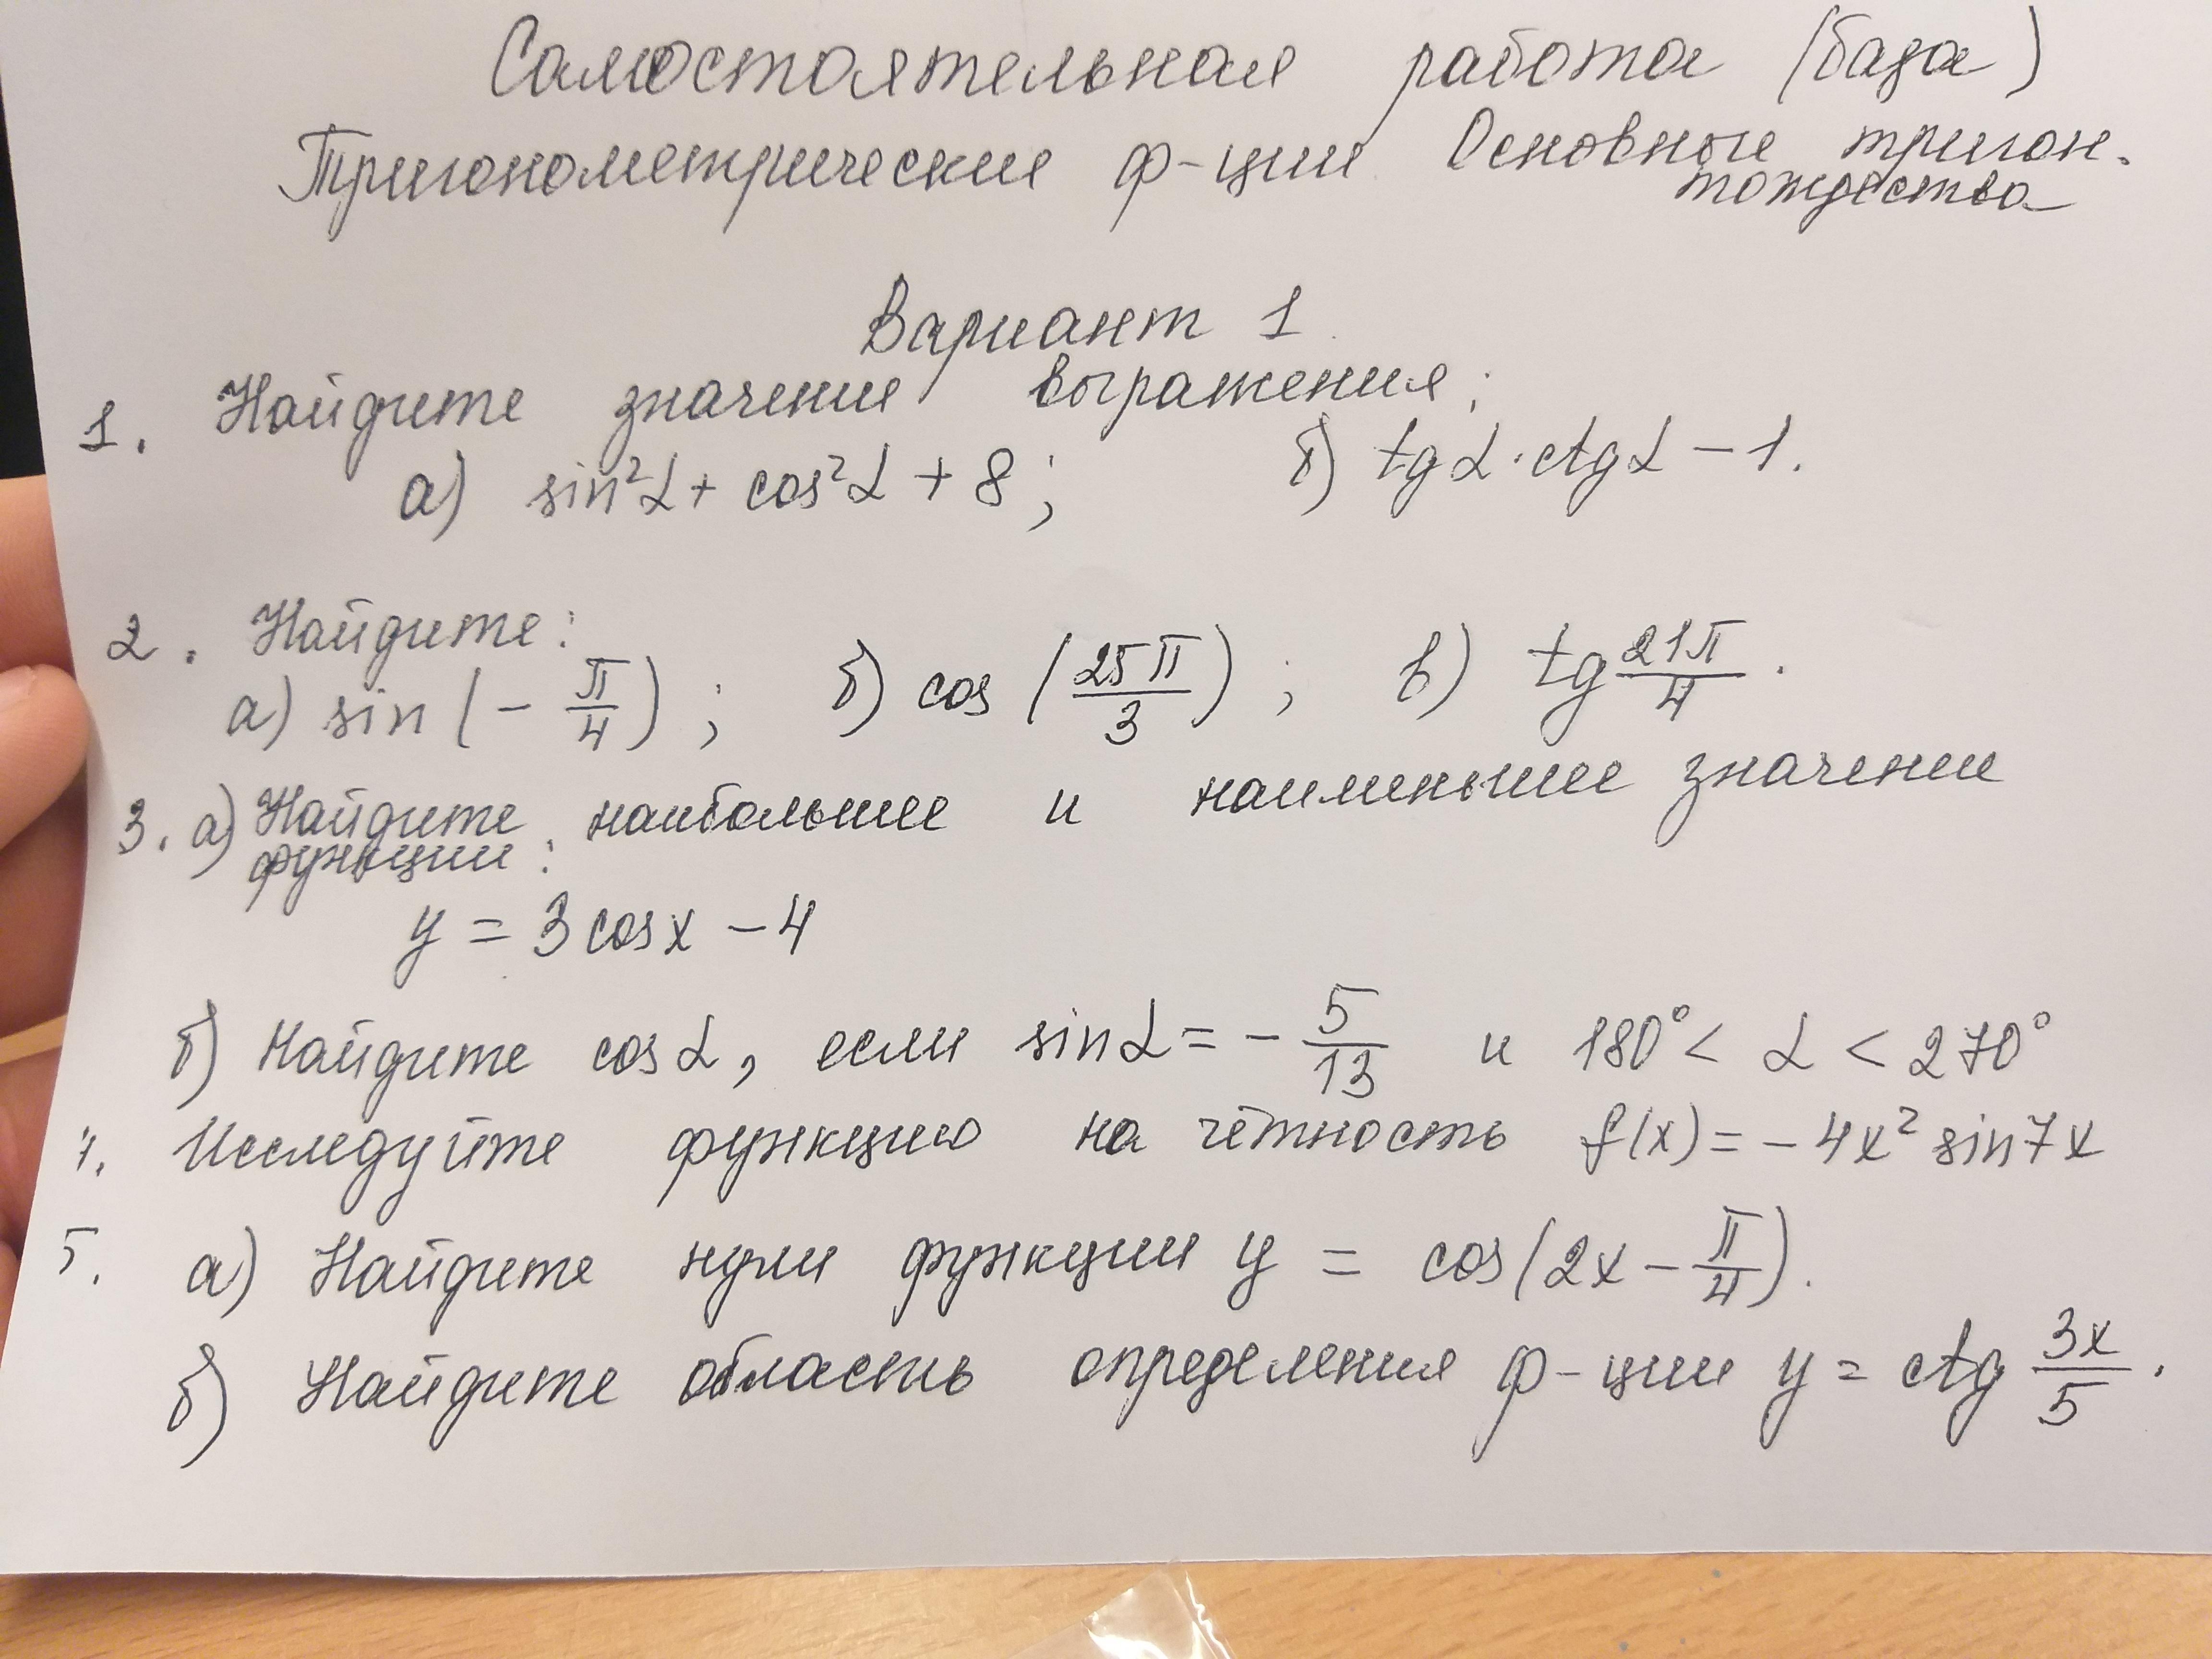 Самостоятельная работа (база)
Тригонометрические ф-ции. Основные тригон. тождества
Вариант 1
1. Найдите значение выражения:
а) sin²α + cos²α + 8; б) tgα · ctgα − 1.
2. Найдите:
а) sin (− π/4); б) cos (25π/3); в) tg 21π/4.
3. а) Найдите наибольшее и наименьшее значение
функции:
y = 3 cos x − 4
б) Найдите cos α, если sin α = − 5/13 и 180° < α < 270°
4. Исследуйте функцию на чётность f(x) = − 4x² sin7x
5. а) Найдите нули функции y = cos(2x − π/4).
б) Найдите область определения ф-ции y = ctg 3x/5.